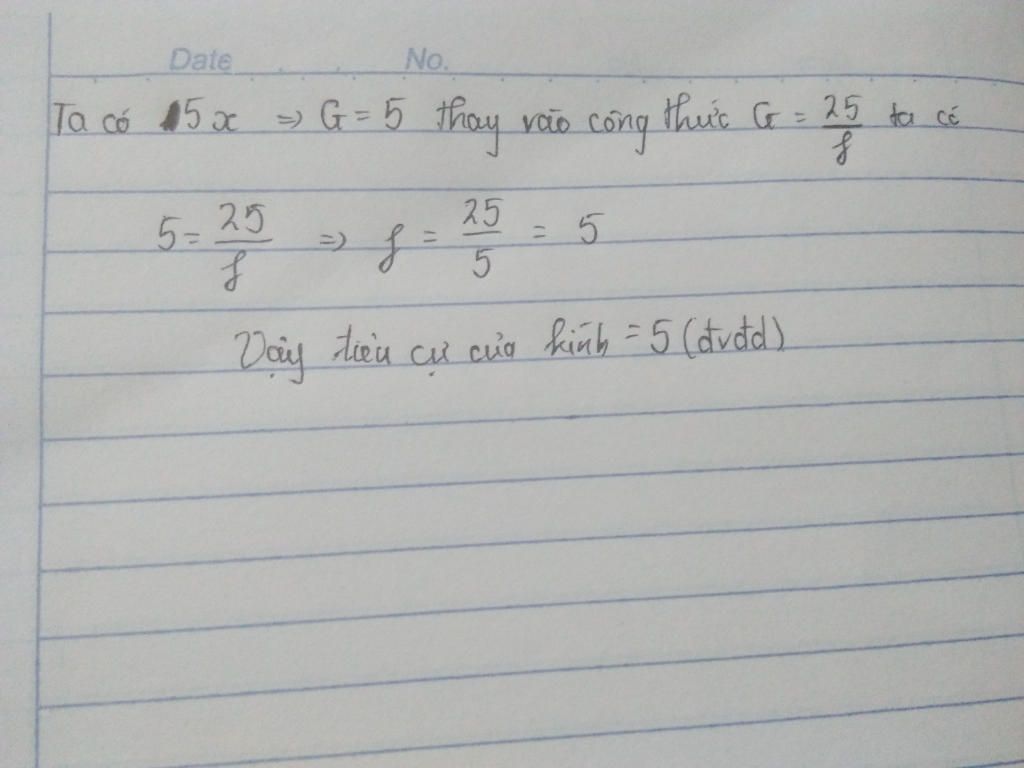 Date No.
Ta có 5x => G = 5 thay vào công thức G = 25/f ta có
5 = 25/f => f = 25/5 = 5
Vậy tiêu cự của kính = 5 (đvđd)